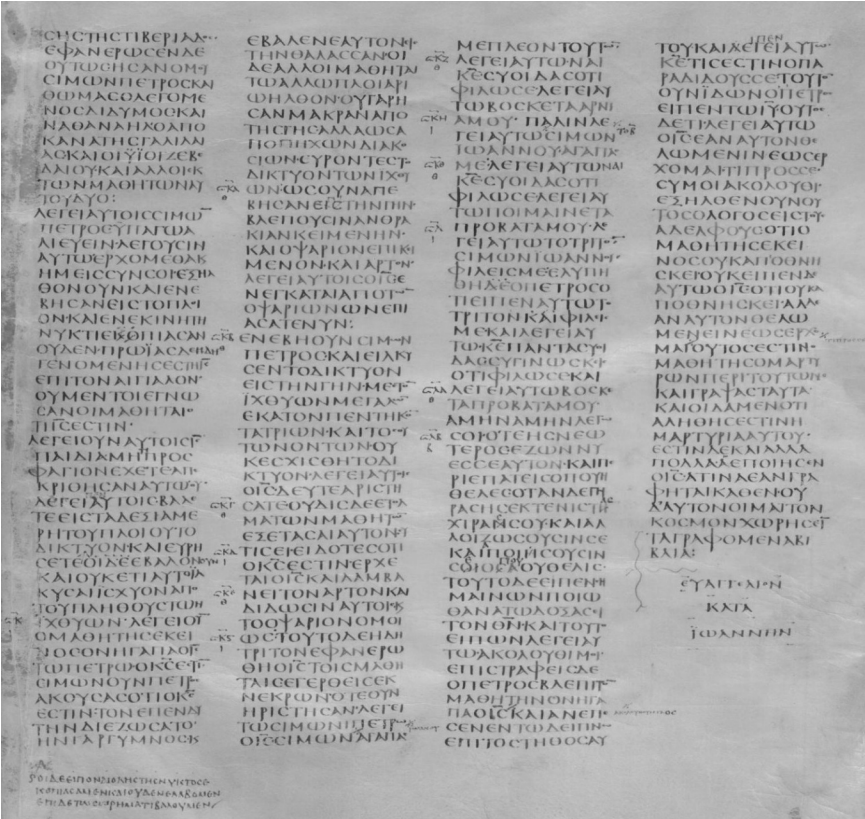 ϹΗϹΤΗϹΤΙΒΕΡΙΑΔΟϹ
ΕΦΑΝΕΡΩϹΕΝΔΕ
ΟΥΤΩϹΗϹΑΝΟΜΟΥ
ϹΙΜΩΝΠΕΤΡΟϹΚΑΙ
ΘΩΜΑϹΟΛΕΓΟΜΕ
ΝΟϹΔΙΔΥΜΟϹΚΑΙ
ΝΑΘΑΝΑΗΛΟΑΠΟ
ΚΑΝΑΤΗϹΓΑΛΙΛΑΙ
ΑϹΚΑΙΟΙΫΪΟΙΖΕΒΕ
ΔΑΙΟΥΚΑΙΑΛΛΟΙΕΚ
ΤΩΝΜΑΘΗΤΩΝΑΥ
ΤΟΥΔΥΟ:
ΛΕΓΕΙΑΥΤΟΙϹϹΙΜΩ̅
ΠΕΤΡΟϹΫΠΑΓΩΑ
ΛΙΕΥΕΙΝΛΕΓΟΥϹΙΝ
ΑΥΤΩΕΡΧΟΜΕΘΑΚΑΙ
ΗΜΕΙϹϹΥΝϹΟΙΕΞΗΛ
ΘΟΝΟΥΝΚΑΙΕΝΕ
ΒΗϹΑΝΕΙϹΤΟΠΛΟΙ
ΟΝΚΑΙΕΝΕΚΙΝΗΤΗ
ΝΥΚΤΙΕΚΟΠΙΑϹΑΝ
ΟΥΔΕΝΠΡΩΪΑϹΔΕΗΔΗ
ΓΕΝΟΜΕΝΗϹΕϹΤΗΙϹ
ΕΠΙΤΟΝΑΙΓΙΑΛΟΝ
ΟΥΜΕΝΤΟΙΕΓΝΩ
ϹΑΝΟΙΜΑΘΗΤΑΙΟΤΙ
ΙϹΕϹΤΙΝ
ΛΕΓΕΙΟΥΝΑΥΤΟΙϹΙϹ
ΠΑΙΔΙΑΜΗΠΡΟϹ
ΦΑΓΙΟΝΕΧΕΤΕΑΠΕ
ΚΡΙΘΗϹΑΝΑΥΤΩΟΥ
ΛΕΓΕΙΑΥΤΟΙϹΒΑΛΕ
ΤΕΕΙϹΤΑΔΕΞΙΑΜΕ
ΡΗΤΟΥΠΛΟΙΟΥΤΟ
ΔΙΚΤΥΟΝΚΑΙΕΥΡΗ
ϹΕΤΕΟΙΔΕΕΒΑΛΟΝ
ΚΑΙΟΥΚΕΤΙΑΥΤΟΕΛ
ΚΥϹΑΙΙϹΧΥΟΝΑΠΟ
ΤΟΥΠΛΗΘΟΥϹΤΩΝ
ΪΧΘΥΩΝΛΕΓΕΙΟΥΝ
ΟΜΑΘΗΤΗϹΕΚΕΙ
ΝΟϹΟΝΗΓΑΠΑΟΙϹ
ΤΩΠΕΤΡΩΟΚϹΕϹΤΙΝ
ϹΙΜΩΝΟΥΝΠΕΤΡΟϹ
ΑΚΟΥϹΑϹΟΤΙΟΚϹ
ΕϹΤΙΝΤΟΝΕΠΕΝΔΥ
ΤΗΝΔΙΕΖΩϹΑΤΟ
ΗΝΓΑΡΓΥΜΝΟϹΚΑΙ
ΕΒΑΛΕΝΕΑΥΤΟΝΕΙϹ
ΤΗΝΘΑΛΑϹϹΑΝΟΙ
ΔΕΑΛΛΟΙΜΑΘΗΤΑΙ
ΤΩΑΛΛΩΠΛΟΙΑΡΙ
ΩΗΛΘΟΝΟΥΓΑΡΗ
ϹΑΝΜΑΚΡΑΝΑΠΟ
ΤΗϹΓΗϹΑΛΛΑΩϹΑ
ΠΟΠΗΧΩΝΔΙΑΚΟ
ϹΙΩΝϹΥΡΟΝΤΕϹΤΟ
ΔΙΚΤΥΟΝΤΩΝΙΧΘΥ
ΩΝΩϹΟΥΝΑΠΕ
ΒΗϹΑΝΕΙϹΤΗΝΓΗΝ
ΒΛΕΠΟΥϹΙΝΑΝΘΡΑ
ΚΙΑΝΚΕΙΜΕΝΗΝ
ΚΑΙΟΨΑΡΙΟΝΕΠΙΚΕΙ
ΜΕΝΟΝΚΑΙΑΡΤΟΝ
ΛΕΓΕΙΑΥΤΟΙϹΟΙϹΕ
ΝΕΓΚΑΤΑΙΑΠΟΤΩΝ
ΟΨΑΡΙΩΝΩΝΕΠΙ
ΑϹΑΤΕΝΥΝ:
ΕΝΕΒΗΟΥΝϹΙΜΩΝ
ΠΕΤΡΟϹΚΑΙΕΙΛΚΥ
ϹΕΝΤΟΔΙΚΤΥΟΝ
ΕΙϹΤΗΝΓΗΝΜΕΣΤΟΝ
ΪΧΘΥΩΝΜΕΓΑΛΩ
ΕΚΑΤΟΝΠΕΝΤΗΚΟΝ
ΤΑΤΡΙΩΝΚΑΙΤΟϹΟΥ
ΤΩΝΟΝΤΩΝΟΥ
ΚΕϹΧΙϹΘΗΤΟΔΙ
ΚΤΥΟΝΛΕΓΕΙΑΥΤΟΙϹ
ΟΙϹΔΕΥΤΕΑΡΙϹΤΗ
ϹΑΤΕΟΥΔΙϹΔΕΕΤΟΛ
ΜΑΤΩΝΜΑΘΗΤΩΝ
ΕΞΕΤΑϹΑΙΑΥΤΟΝϹΥ
ΤΙϹΕΙΕΙΔΟΤΕϹΟΤΙ
ΟΚϹΕϹΤΙΝΕΡΧΕ
ΤΑΙΟΙϹΚΑΙΛΑΜΒΑ
ΝΕΙΤΟΝΑΡΤΟΝΚΑΙ
ΔΙΔΩϹΙΝΑΥΤΟΙϹΚΑΙ
ΤΟΟΨΑΡΙΟΝΟΜΟΙ
ΩϹΤΟΥΤΟΔΕΗΔΗ
ΤΡΙΤΟΝΕΦΑΝΕΡΩ
ΘΗΟΙϹΤΟΙϹΜΑΘΗ
ΤΑΙϹΕΓΕΡΘΕΙϹΕΚ
ΝΕΚΡΩΝΟΤΕΟΥΝ
ΗΡΙϹΤΗϹΑΝΛΕΓΕΙ
ΤΩϹΙΜΩΝΙΠΕΤΡΩ
ΟΙϹϹΙΜΩΝΑΓΑΠΑϹ
ΜΕΠΛΕΟΝΤΟΥΤΩΝ
ΛΕΓΕΙΑΥΤΩΝΑΙ
ΚΕϹΥΟΙΔΑϹΟΤΙ
ΦΙΛΩϹΕΛΕΓΕΙΑΥ
ΤΩΒΟϹΚΕΤΑΑΡΝΙ
ΑΜΟΥΠΑΛΙΝΛΕ
ΓΕΙΑΥΤΩϹΙΜΩΝ
ΙΩΑΝΝΟΥΑΓΑΠΑϹ
ΜΕΛΕΓΕΙΑΥΤΩΝΑΙ
ΚΕϹΥΟΙΔΑϹΟΤΙ
ΦΙΛΩϹΕΛΕΓΕΙΑΥ
ΤΩΠΟΙΜΑΙΝΕΤΑ
ΠΡΟΒΑΤΑΜΟΥΛΕ
ΓΕΙΑΥΤΩΤΟΤΡΙΤΟΝ
ϹΙΜΩΝΙΩΑΝΝΟΥ
ΦΙΛΕΙϹΜΕΕΛΥΠΗ
ΘΗΔΕΟΠΕΤΡΟϹΟ
ΤΙΕΙΠΕΝΑΥΤΩΤΟ
ΤΡΙΤΟΝΚΑΙΦΙΛΕΙϹ
ΜΕΚΑΙΛΕΓΕΙΑΥ
ΤΩΚΕΠΑΝΤΑϹΥΟΙ
ΔΑϹϹΥΓΙΝΩϹΚΕΙϹ
ΟΤΙΦΙΛΩϹΕΚΑΙ
ΛΕΓΕΙΑΥΤΩΒΟϹΚΕ
ΤΑΠΡΟΒΑΤΑΜΟΥ
ΑΜΗΝΑΜΗΝΛΕΓΩ
ϹΟΙΟΤΕΗϹΝΕΩ
ΤΕΡΟϹΕΖΩΝΝΥ
ΕϹϹΕΑΥΤΟΝΚΑΙΠΕ
ΡΙΕΠΑΤΕΙϹΟΠΟΥΗ
ΘΕΛΕϹΟΤΑΝΔΕΓΗ
ΡΑϹΗϹΕΚΤΕΝΙϹΤΗΝ
ΧΙΡΑϹΟΥΚΑΙΑΛ
ΛΟΙΖΩϹΟΥϹΙΝϹΕ
ΚΑΙΠΟΙΗϹΟΥϹΙΝ
ϹΟΙΟϹΑΟΥΘΕΛΙϹ
ΤΟΥΤΟΔΕΕΙΠΕΝϹΗ
ΜΑΙΝΩΝΠΟΙΩ
ΘΑΝΑΤΩΔΟΞΑϹΕΙ
ΤΟΝΘΝΚΑΙΤΟΥΤΟ
ΕΙΠΩΝΛΕΓΕΙΑΥ
ΤΩΑΚΟΛΟΥΘΙΜΟΙ
ΕΠΙϹΤΡΑΦΕΙϹΔΕ
ΟΠΕΤΡΟϹΒΛΕΠΙΤΟΝ
ΜΑΘΗΤΗΝΟΝΗΓΑ
ΠΑΟΙϹΚΑΙΑΝΕΠΕ
ϹΕΝΕΝΤΩΔΕΙΠΝΩ
ΕΠΙΤΟϹΤΗΘΟϹΑΥ
ΤΟΥΚΑΙΛΕΓΕΙΑΥΤΩ
ΚΕΤΙϹΕϹΤΙΝΟΠΑ
ΡΑΔΙΔΟΥϹϹΕΤΟΥΤΟΝ
ΟΥΝΪΔΩΝΟΠΕΤΡΟϹ
ΕΙΠΕΝΤΩΙΥΟΥΤΟϹ
ΔΕΤΙΛΕΓΕΙΑΥΤΩ
ΟΙϹΕΑΝΑΥΤΟΝΘΕ
ΛΩΜΕΝΙΝΕΩϹΕΡ
ΧΟΜΑΙΤΙΠΡΟϹϹΕ
ϹΥΜΟΙΑΚΟΛΟΥΘΙ
ΕΞΗΛΘΕΝΟΥΝΟΥ
ΤΟϹΟΛΟΓΟϹΕΙϹΤΟΥϹ
ΑΔΕΛΦΟΥϹΟΤΙΟ
ΜΑΘΗΤΗϹΕΚΕΙ
ΝΟϹΟΥΚΑΠΟΘΝΗ
ϹΚΕΙΟΥΚΕΙΠΕΝΔΕ
ΑΥΤΩΟΙϹΟΤΙΟΥΚΑ
ΠΟΘΝΗϹΚΕΙΑΛΛΑΕ
ΑΝΑΥΤΟΝΘΕΛΩ
ΜΕΝΕΙΝΕΩϹΕΡΧΟ
ΜΑΙΟΥΤΟϹΕϹΤΙΝΟ
ΜΑΘΗΤΗϹΟΜΑΡΤΥ
ΡΩΝΠΕΡΙΤΟΥΤΩΝ
ΚΑΙΓΡΑΨΑϹΤΑΥΤΑ
ΚΑΙΟΙΔΑΜΕΝΟΤΙ
ΑΛΗΘΗϹΕϹΤΙΝΗ
ΜΑΡΤΥΡΙΑΑΥΤΟΥ
ΕϹΤΙΝΔΕΚΑΙΑΛΛΑ
ΠΟΛΛΑΑΕΠΟΙΗϹΕΝ
ΟΙϹΑΤΙΝΑΕΑΝΓΡΑ
ΦΗΤΑΙΚΑΘΕΝΟΥ
ΔΑΥΤΟΝΟΙΜΑΙΤΟΝ
ΚΟϹΜΟΝΧΩΡΗϹΕΙ
ΤΑΓΡΑΦΟΜΕΝΑΒΙ
ΒΛΙΑ:
ΕΥΑΓΓΕΛΙΟΝ
ΚΑΤΑ
ΪΩΑΝΝΗΝ